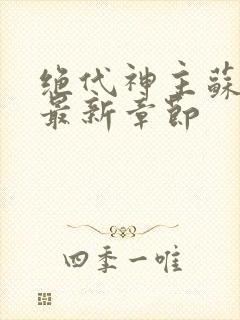 绝代神主蘇
最新章節
四季一唯